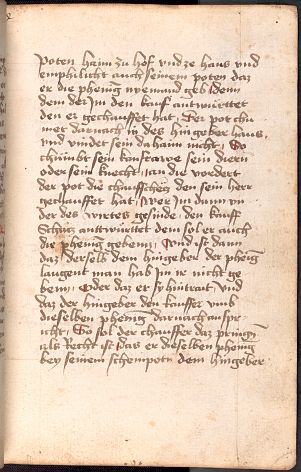 poten haim zu hof vnd ze haus vnd
emphilicht auch seinem poten daz
er die phening nyemand geb denn
dem der Im den kauf antwürttet
den er gechauffet hat Der pot chu
met darnach in des hingeber haus
vnd vindet sein da haim nicht So
sein hausfraw sein diern
oder sein knecht an die vordert
der pot die chauffscheg den sein herr
gechauffet hat wer Im dann vn
der des wirtes gesinde den kauff
schatz antwürttet dem sol er auch
die phening geben Vnd ist dann
daz derselb dem hingeber der phenig
laugent man hab Im ir nicht ge
benn Oder daz er ist vnd
daz der hingeber den kauffer vmb
dieselben phenig darnach anspr
icht So sol der chauffer daz pringen
als Recht ist das er dieselben phenig
bey seinem potn dem hingeber